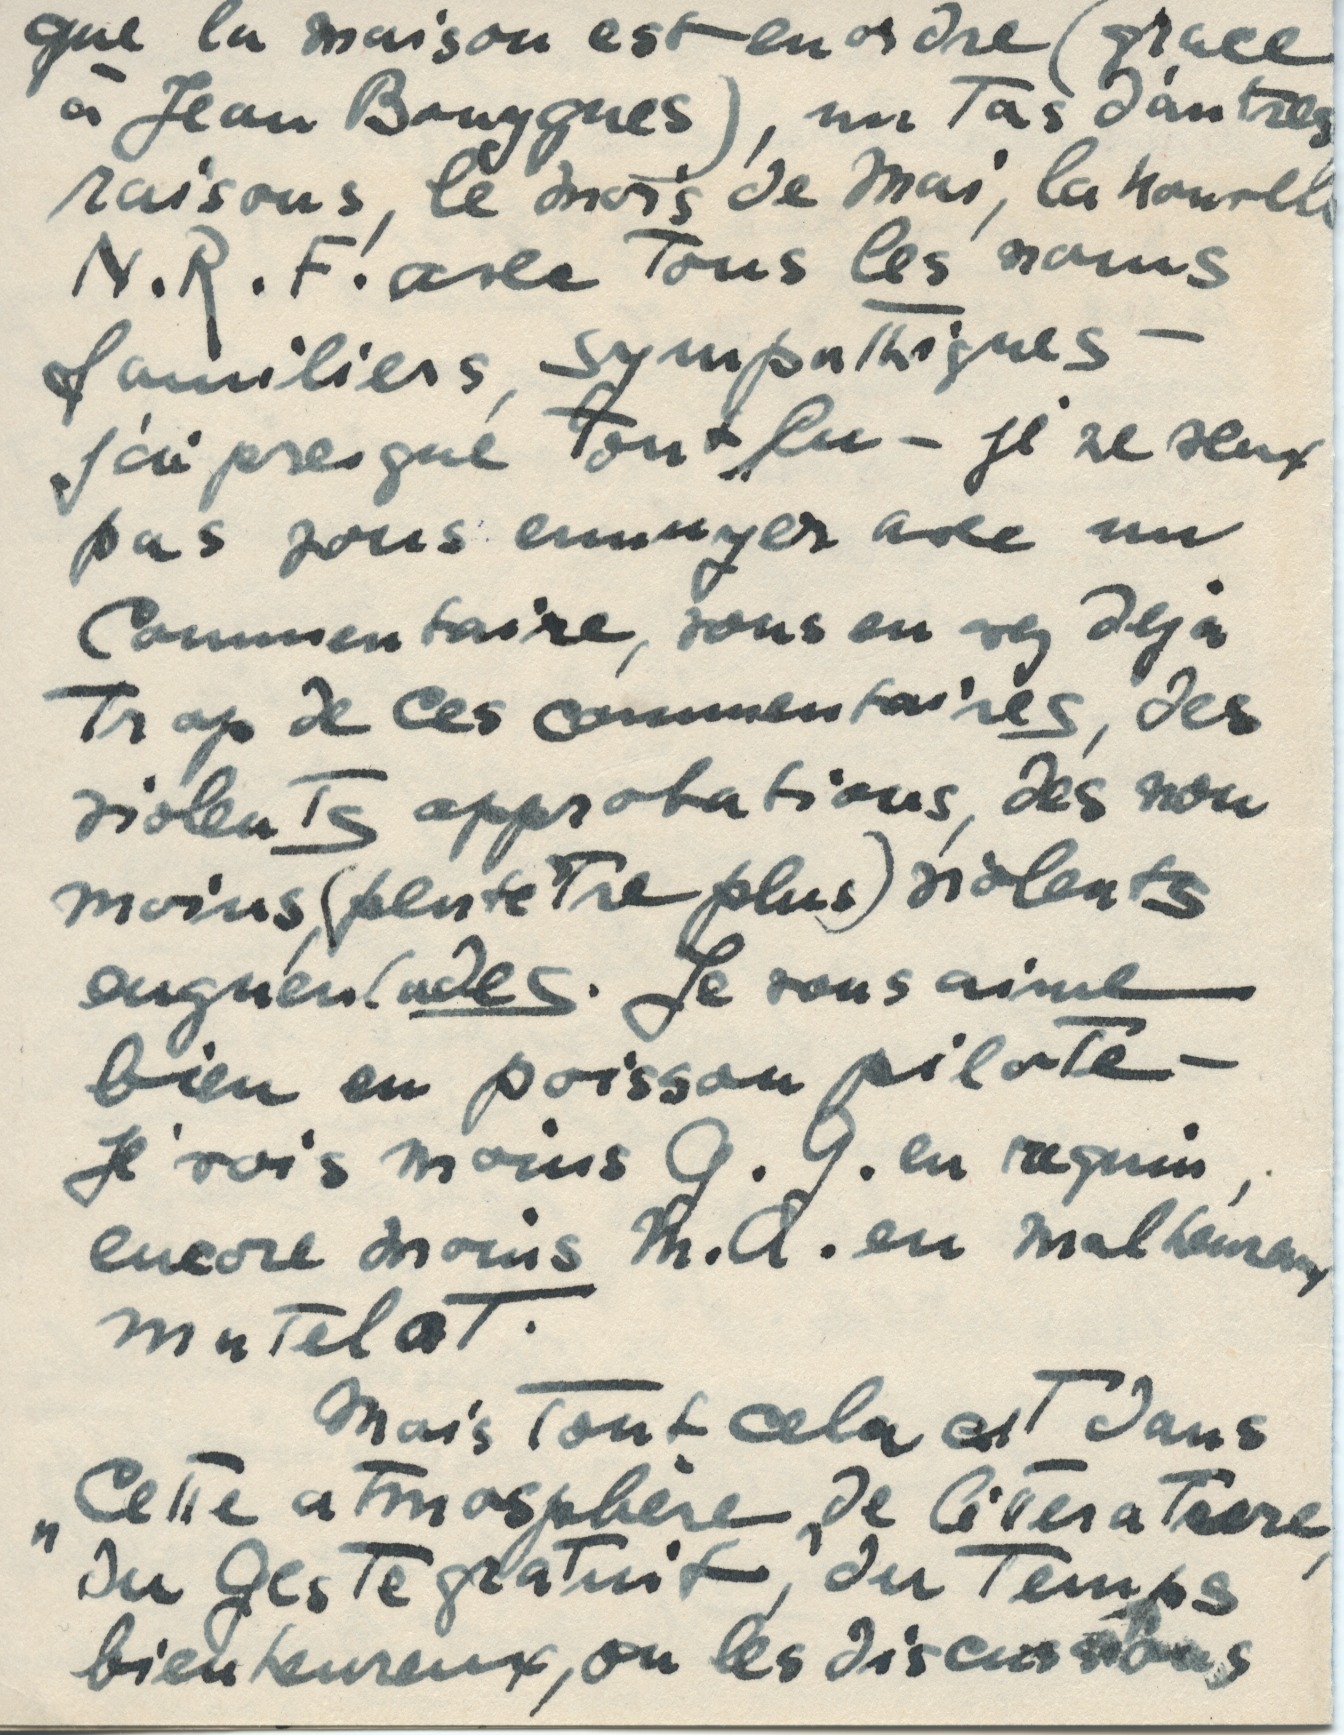 que la maison est en ordre (grace
à Jean Bouygues), un tas d'autres
raisons, le mois de mai, la nouvelle
N.R.F. avec tous les noms
familiers, sympathiques –
j'ai presque tout lu – je ne veux
pas vous ennuyer avec un
commentaire, vous en avez deja
trop de ces commentaires, des
violents approbations, des non
moins, (peutetre plus) violents
enguelades. Je vous aime
bien en poisson pilote –
je vois moins G.G. en requin,
encore moins M.A. en malheureux
matelot.
Mais tout cela est dans
cette atmosphère, de literature,
"du geste gratuit", du temps
bienheureux, ou les discussions